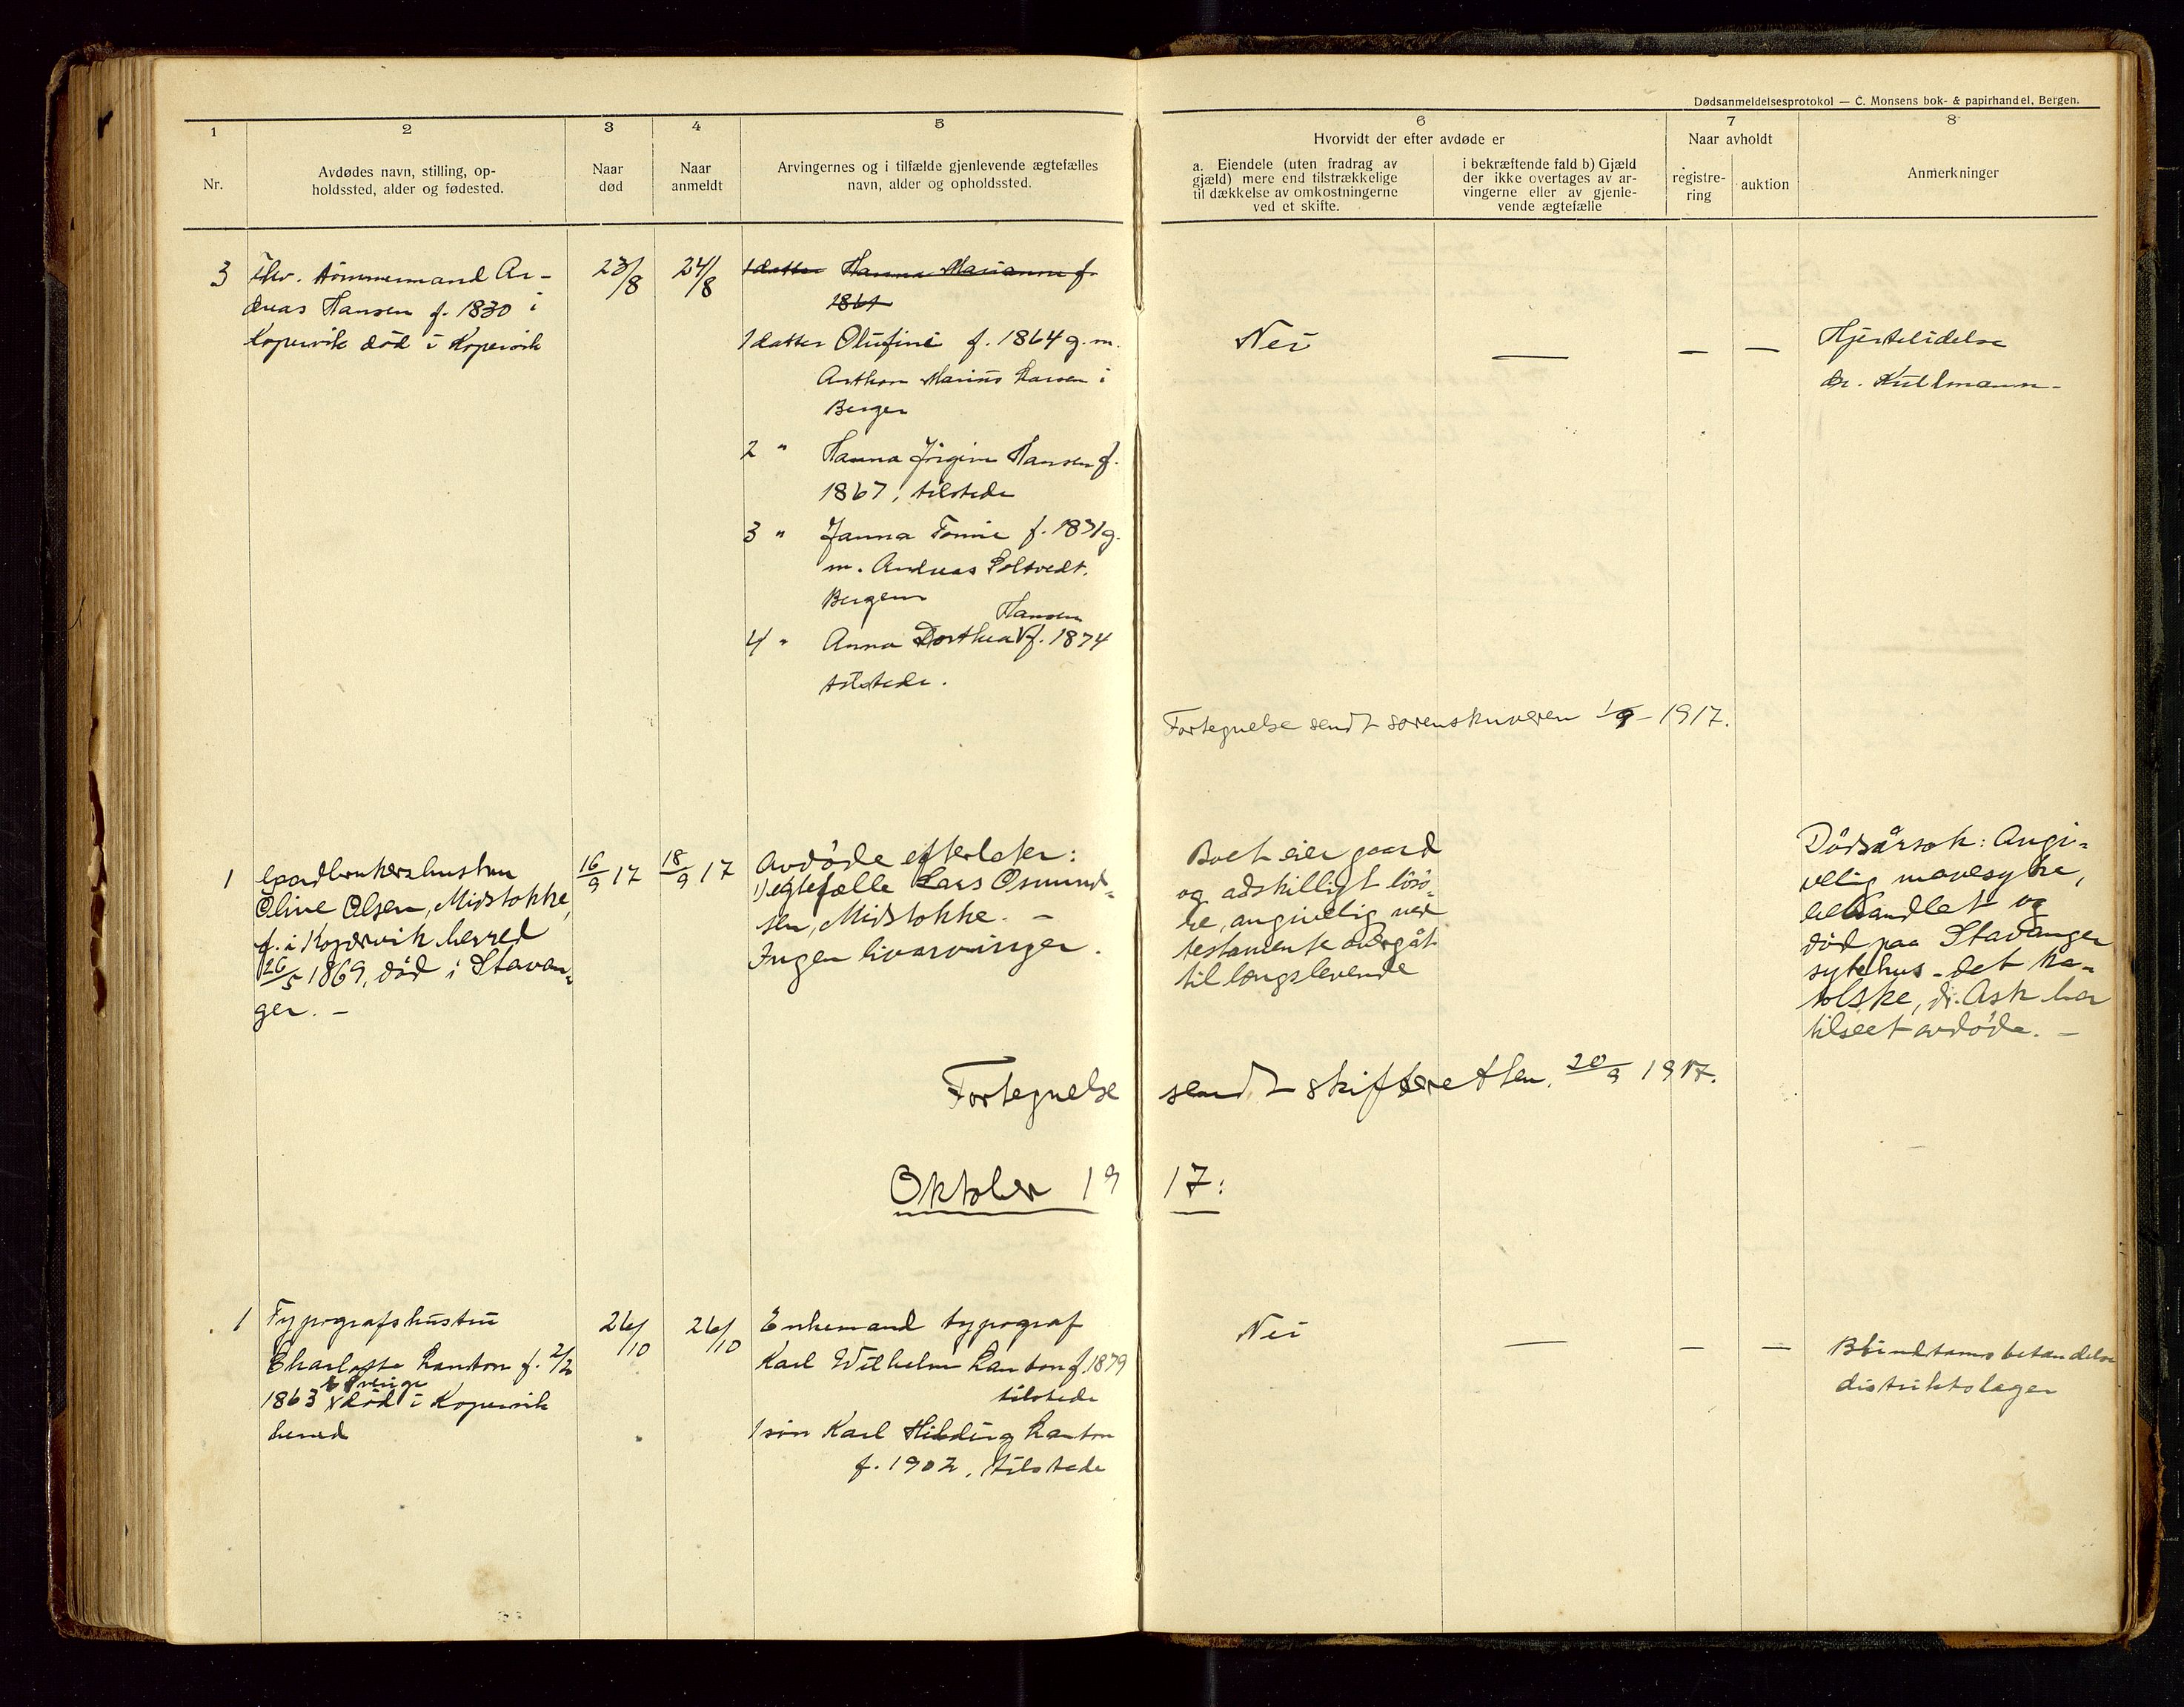 Dødsanmeldelsesprotokol — C. Monsens bok- & papirhandel, Bergen.
1
2
3
4
5
6
7
8
Nr.
Avdødes navn, stilling, op-
holdssted, alder og fødested.
Naar
død
Naar
anmeldt
Arvingernes og i tilfælde gjenlevende ægtefælles
navn, alder og opholdssted.
Hvorvidt der efter avdøde er
a. Eiendele (uten fradrag av
gjæld) mere end tilstrækkelige
til dækkelse av omkostningerne
ved et skifte.
i bekræftende fald b) Gjæld
der ikke overtages av ar-
vingerne eller av gjenle-
vende ægtefælle
Naar avholdt
registre-
ring
auktion
Anmerkninger
3
Fhv. tømmermand An-
dreas Hansen f. 1830 i
Kopervik död i Kopervik
23/8
24/8
1 datter Hanna Marianne f.
1861
1 datter Olufine f. 1864 g. m.
Anthon Marius Larsen i
Bergen
2 " Hanna Jörgine Hansen f.
1867, tilstede
3 " Janna Tomie f. 1871 g.
m. Andreas Soltvedt.
Bergen
Hansen
4 " Anna Dorthea V f. 1874
tilstede.
Nei
—
—
—
Hjertelidelse
dr. Kullmann -
Fortegnelse sendt sorenskriveren 1/9 - 1917.
1
Gaardbrukershustru
Oline Olsen, Midstokke,
f. i Kopervik herred
26/5 1869, död i Stavan-
ger. -
16/9 17
18/9 17
Avdöde efterlater:
1) egtefælle Lars Osmund-
sen, Midstokke. -
Ingen livarvinger.
Boet eier gaard
og adskilligt løsö-
re, angivelig ved
testamente overgåt
til længslevende
Dödsårsak: Angi-
velig mavesyke,
behandlet og
död paa Stavanger
sykehus - det ka-
tolske, dr. Ask har
tilseet avdöde. -
Fortegnelse sendt skifteretten. 20/9 1917.
Oktober 1917:
1
Typografshustru
Charlotte Lanton f. 2/2
i Sverige
1863 V död i Kopervik
herred
26/10
26/10
Enkemand typograf
Karl Wilhelm Lanton f. 1879
tilstede
1 sön Karl Hilding Lanton
f. 1902, tilstede
Nei
—
—
—
Blindtarmsbetændelse
distriktslæger